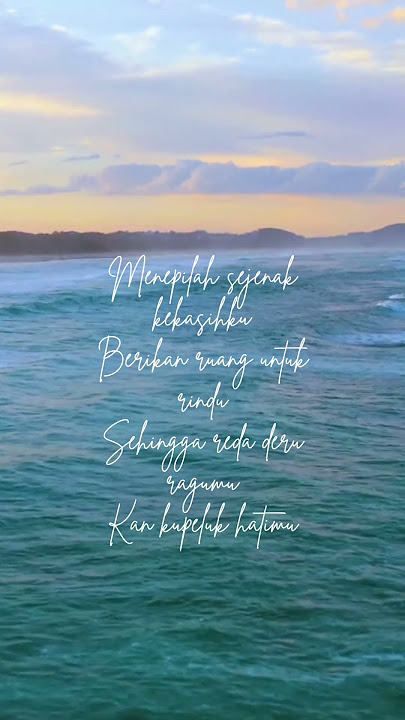 Menepilah sejenak
kekasihku
Berikan ruang untuk
rindu
Sehingga reda deru
ragumu
Kan kupeluk hatimu